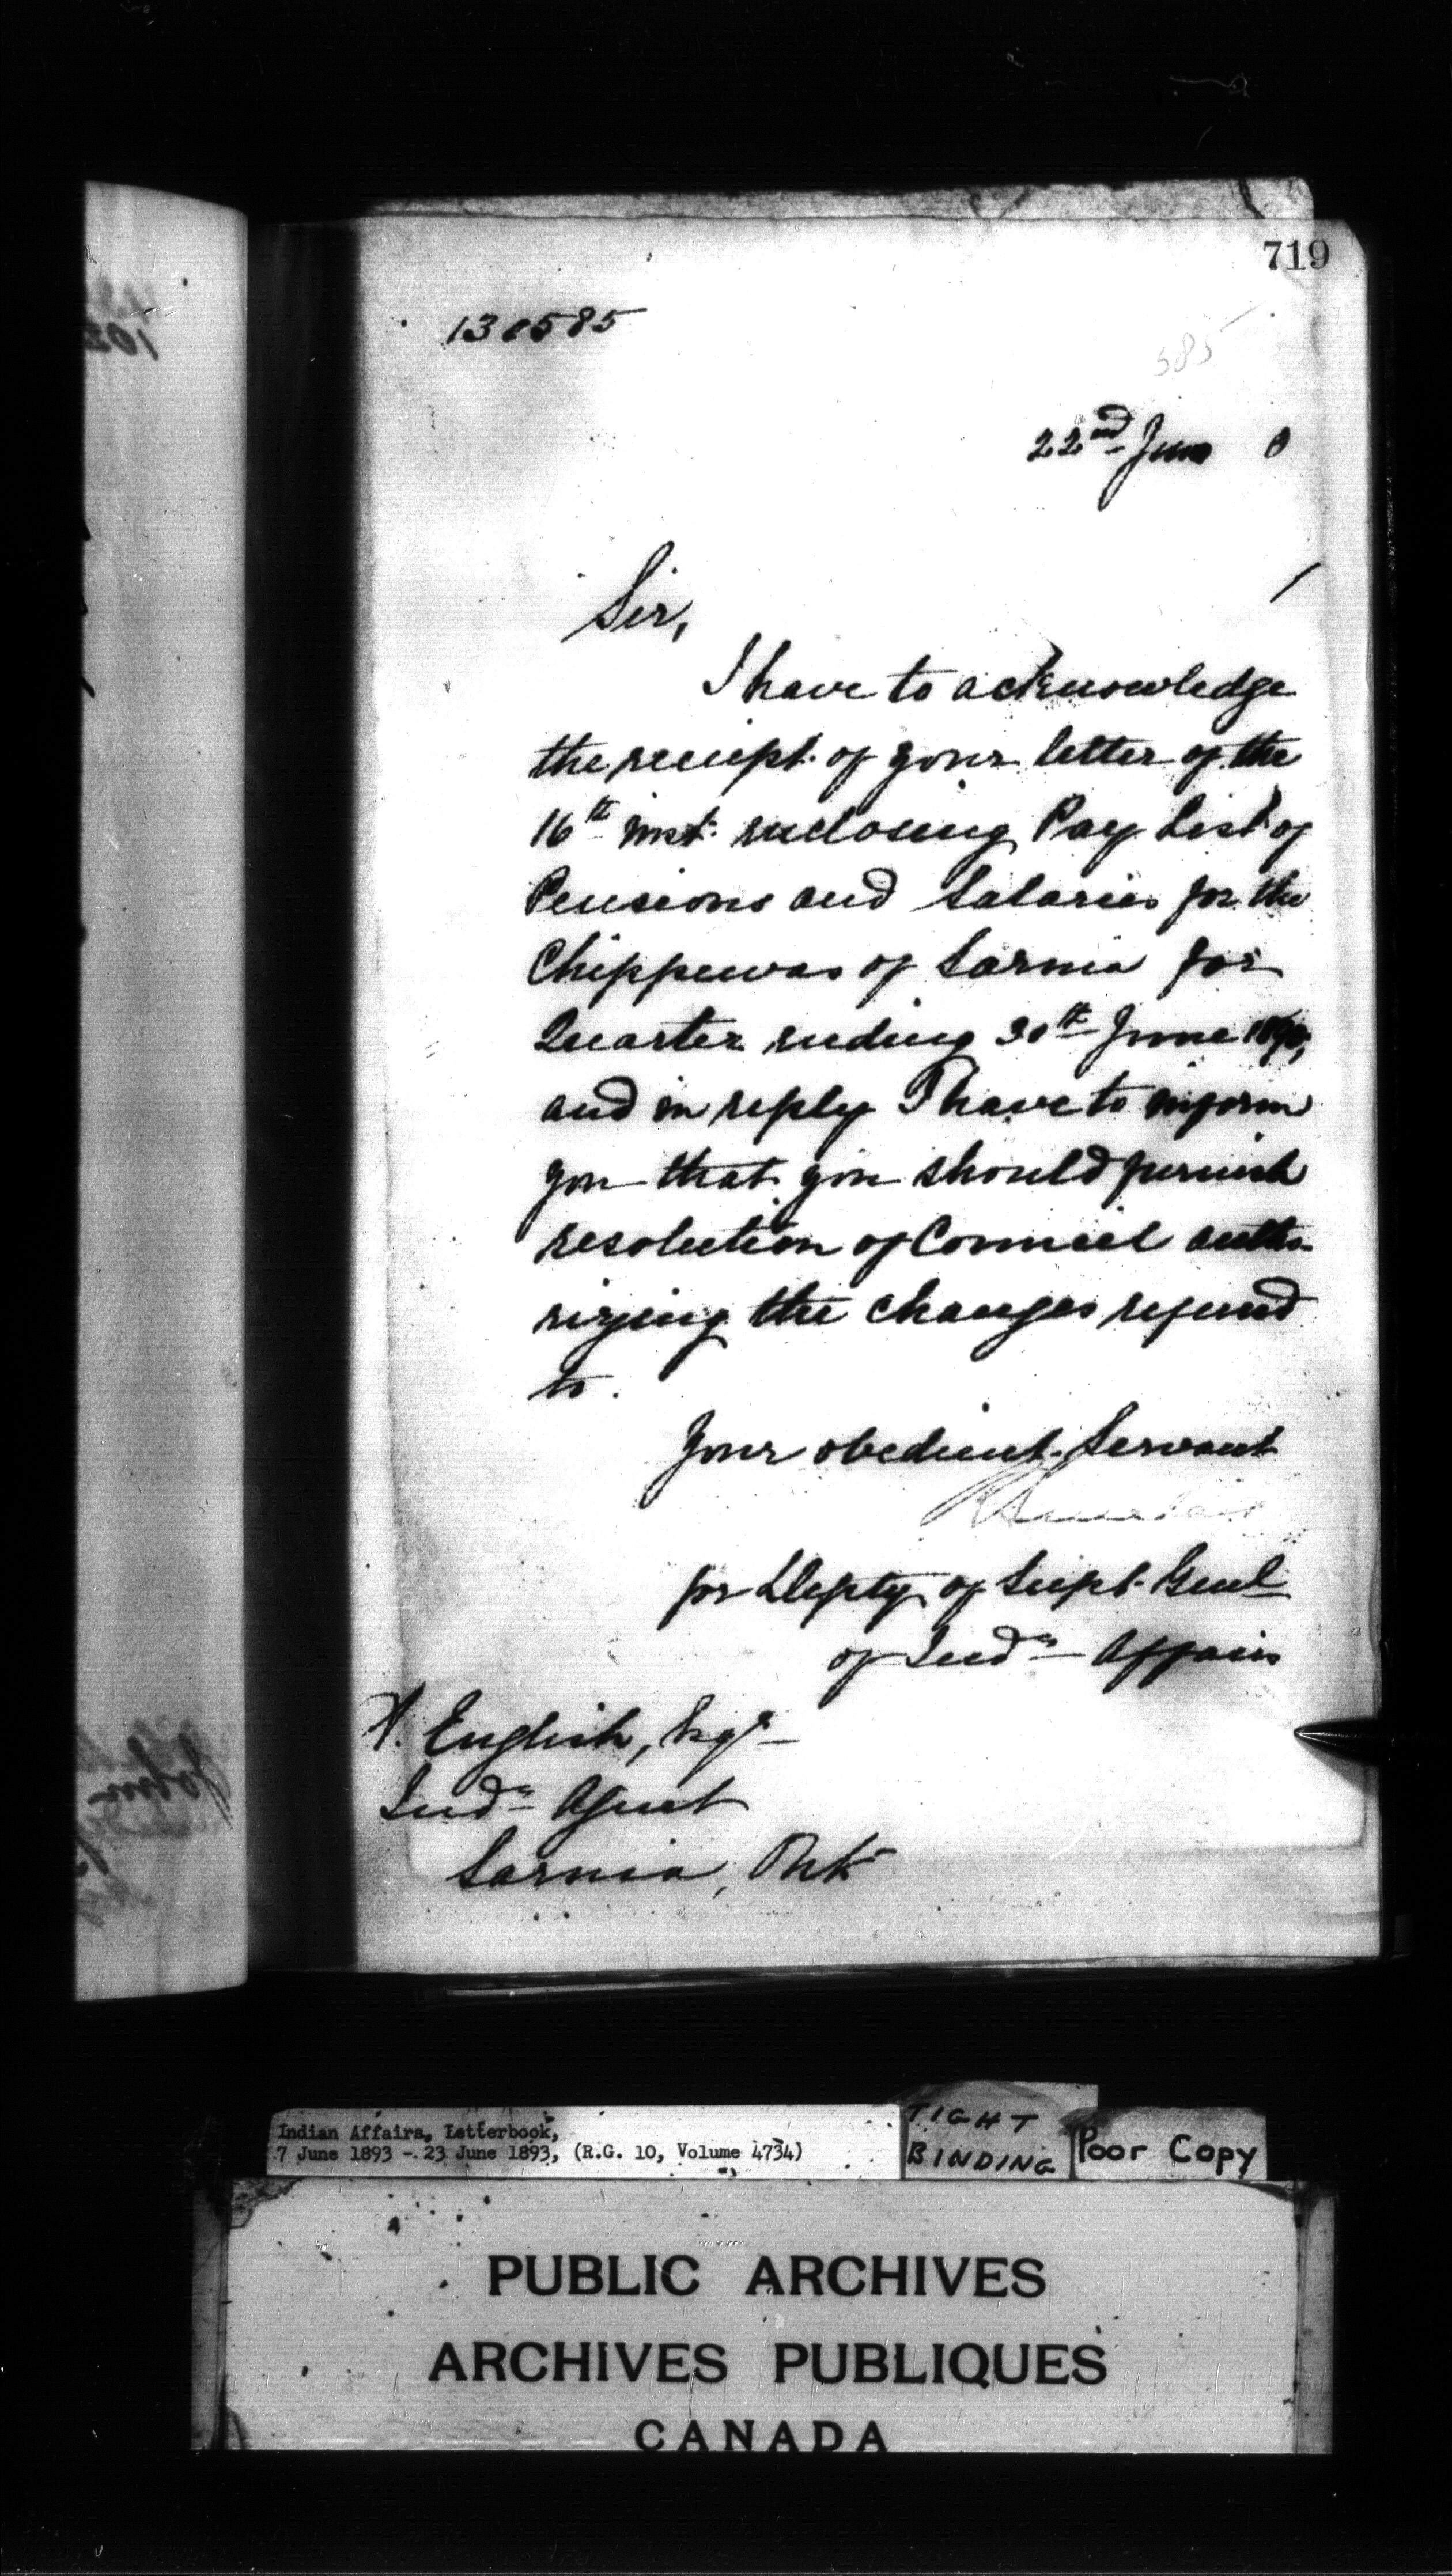 719
130585
585
22nd June
Sir,
I have to acknowledge
the receipt of your letter of the
16th inst. enclosing Pay List of
Pensions and Salaries for the
Chippewas of Sarnia for
Quarter ending 30th June
and in reply I have to inform
you that you should furnish
resolution of Council autho-
rizing the changes referred
to.
Your obedient Servant
for Depty of Supt. Genl
of Indn Affairs
A. English, Esqr
Indn Agent
Sarnia, Ont
Indian Affairs, Letterbook,
7 June 1893 - 23 June 1893, (R.G. 10, Volume 4734)
TIGHT
BINDING
Poor Copy
PUBLIC ARCHIVES
ARCHIVES PUBLIQUES
CANADA